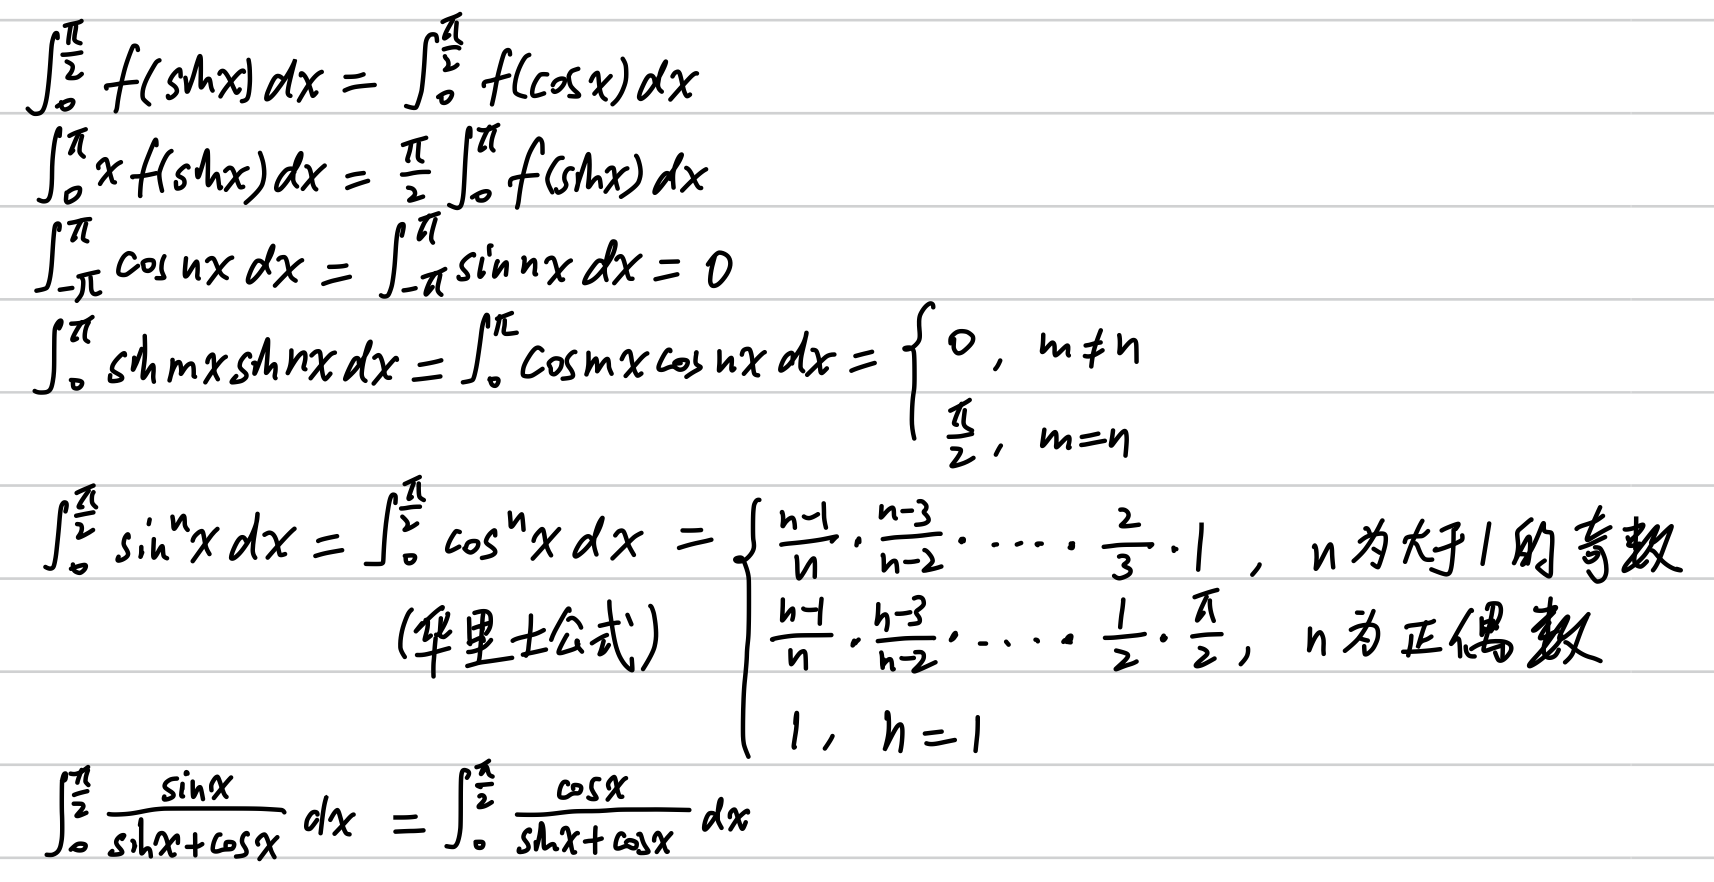 ∫₀^{π/2} f(sinx) dx = ∫₀^{π/2} f(cosx) dx
∫₀^π x f(sinx) dx = π/2 ∫₀^π f(sinx) dx
∫_{-π}^π cos nx dx = ∫_{-π}^π sin nx dx = 0
∫₀^π sin mx sin nx dx = ∫₀^π cos mx cos nx dx = { 0, m≠n
π/2, m=n
∫₀^{π/2} sinⁿx dx = ∫₀^{π/2} cosⁿx dx = { (n-1)/n · (n-3)/(n-2) · ⋯ · 2/3 · 1, n为大于1的奇数
(华里士公式) (n-1)/n · (n-3)/(n-2) · ⋯ · 1/2 · π/2, n为正偶数
1, n=1
∫₀^{π/2} sinx/(sinx+cosx) dx = ∫₀^{π/2} cosx/(sinx+cosx) dx